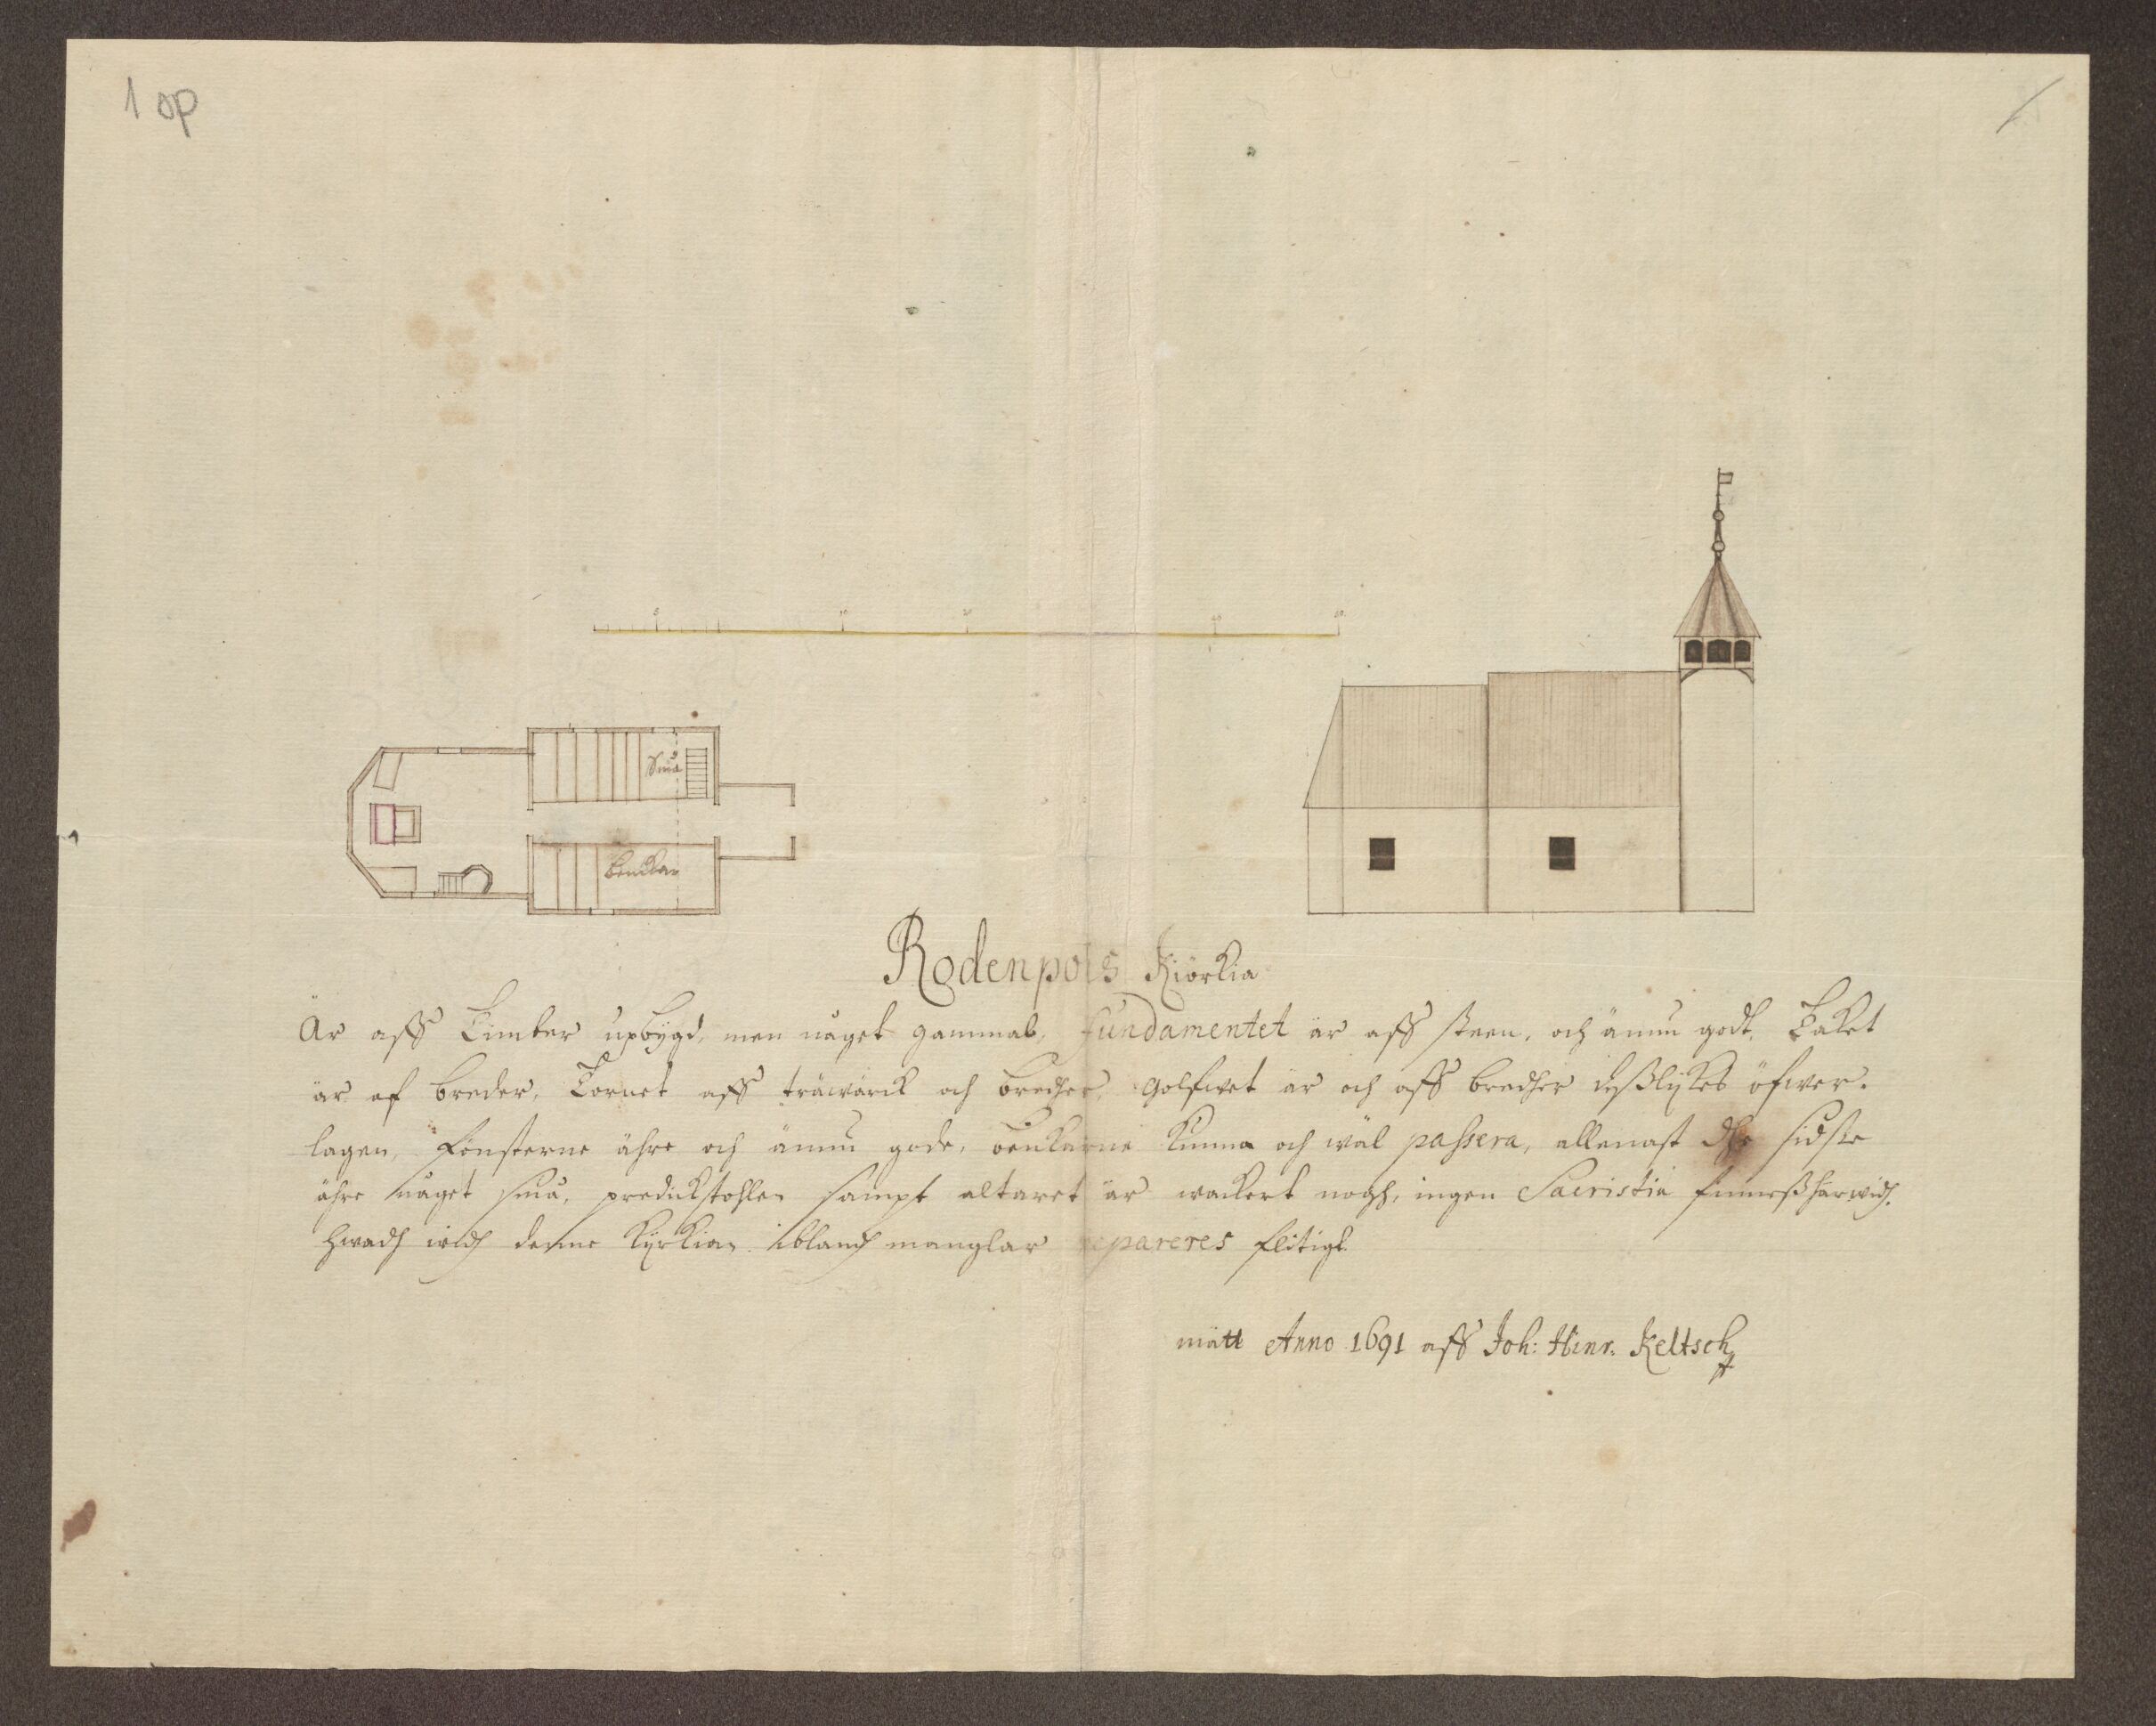 1 op
5 10 20 40 60
Små
benckar
Rodenpois Kiörkia
Är aff Timber upbygd, men något gammab, fundamentet är aff steen, och ännu godt, Taket
är af breder, Tornet aff träwärck och bredher, Golfwet är och aff bredher deßlijkes öfwer-
lagen, Fönsterne ähre och ännu gode, benkarne kunna och wäl passera, allenast dhe sidste
ähre något små, predickstohlen sampt altaret är wackert nogh, ingen Sacristia finnes härwidh.
Hwadh widh denne Kyrkian iblandh manglar repareres flitigt.
mätt Anno 1691 aff Joh: Hinr. Keltsch